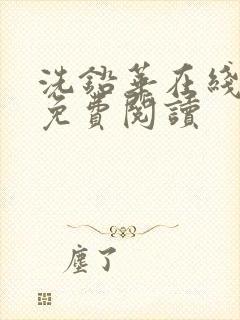 洗鉛華在綫
免費閱讀
塵了